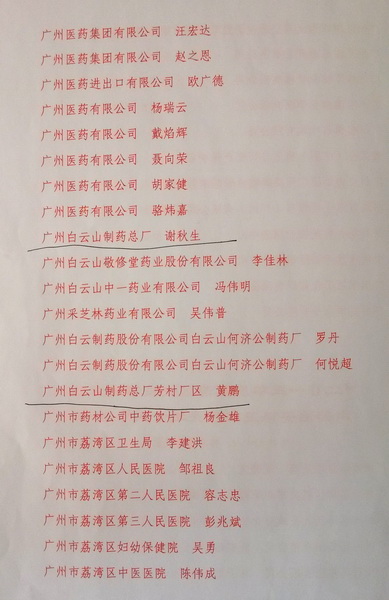 广州医药集团有限公司 汪宏达
广州医药集团有限公司 赵之恩
广州医药进出口有限公司 欧广德
广州医药有限公司 杨瑞云
广州医药有限公司 戴焰辉
广州医药有限公司 聂向荣
广州医药有限公司 胡家健
广州医药有限公司 骆炜嘉
广州白云山制药总厂 谢秋生
广州白云山敬修堂药业股份有限公司 李佳林
广州白云山中一药业有限公司 冯伟明
广州采芝林药业有限公司 吴伟普
广州白云制药股份有限公司白云山何济公制药厂 罗丹
广州白云制药股份有限公司白云山何济公制药厂 何悦超
广州白云山制药总厂芳村厂区 黄鹏
广州市药材公司中药饮片厂 杨金雄
广州市荔湾区卫生局 李建洪
广州市荔湾区人民医院 邹祖良
广州市荔湾区第二人民医院 容志忠
广州市荔湾区第三人民医院 彭兆斌
广州市荔湾区妇幼保健院 吴勇
广州市荔湾区中医医院 陈伟成